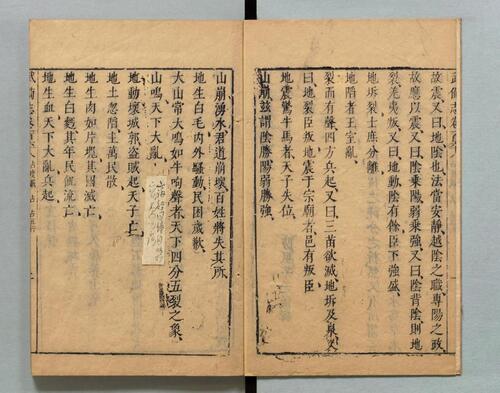 武備志卷百六
故震又曰地陰也法當安靜越陰之職專陽之政
故應以震又曰陰乘陽弱乘強又曰陰背陰則地
裂羌夷叛又曰地動陰有餘臣下強盛
地坼裂士庶分離
地陷者王室亂
裂而有聲四方兵起又曰三苗欲滅地坼及泉又
曰地裂臣叛地震于宗廟者邑有叛臣
地震驚牛馬者天子失位
山崩茲謂陰勝陽弱勝強
山崩湧水君道崩壞百姓將失其所
地生白毛內外騷動民困歲歉
大山常大鳴如牛呴聲者天下四分五裂之象
山鳴天下大亂
地動壞城郭盜賊起天子亡
地土忽陷主萬民散
地生肉如片塊其國滅亡
地生白麪其年民飢流亡
地生血天下大亂兵起